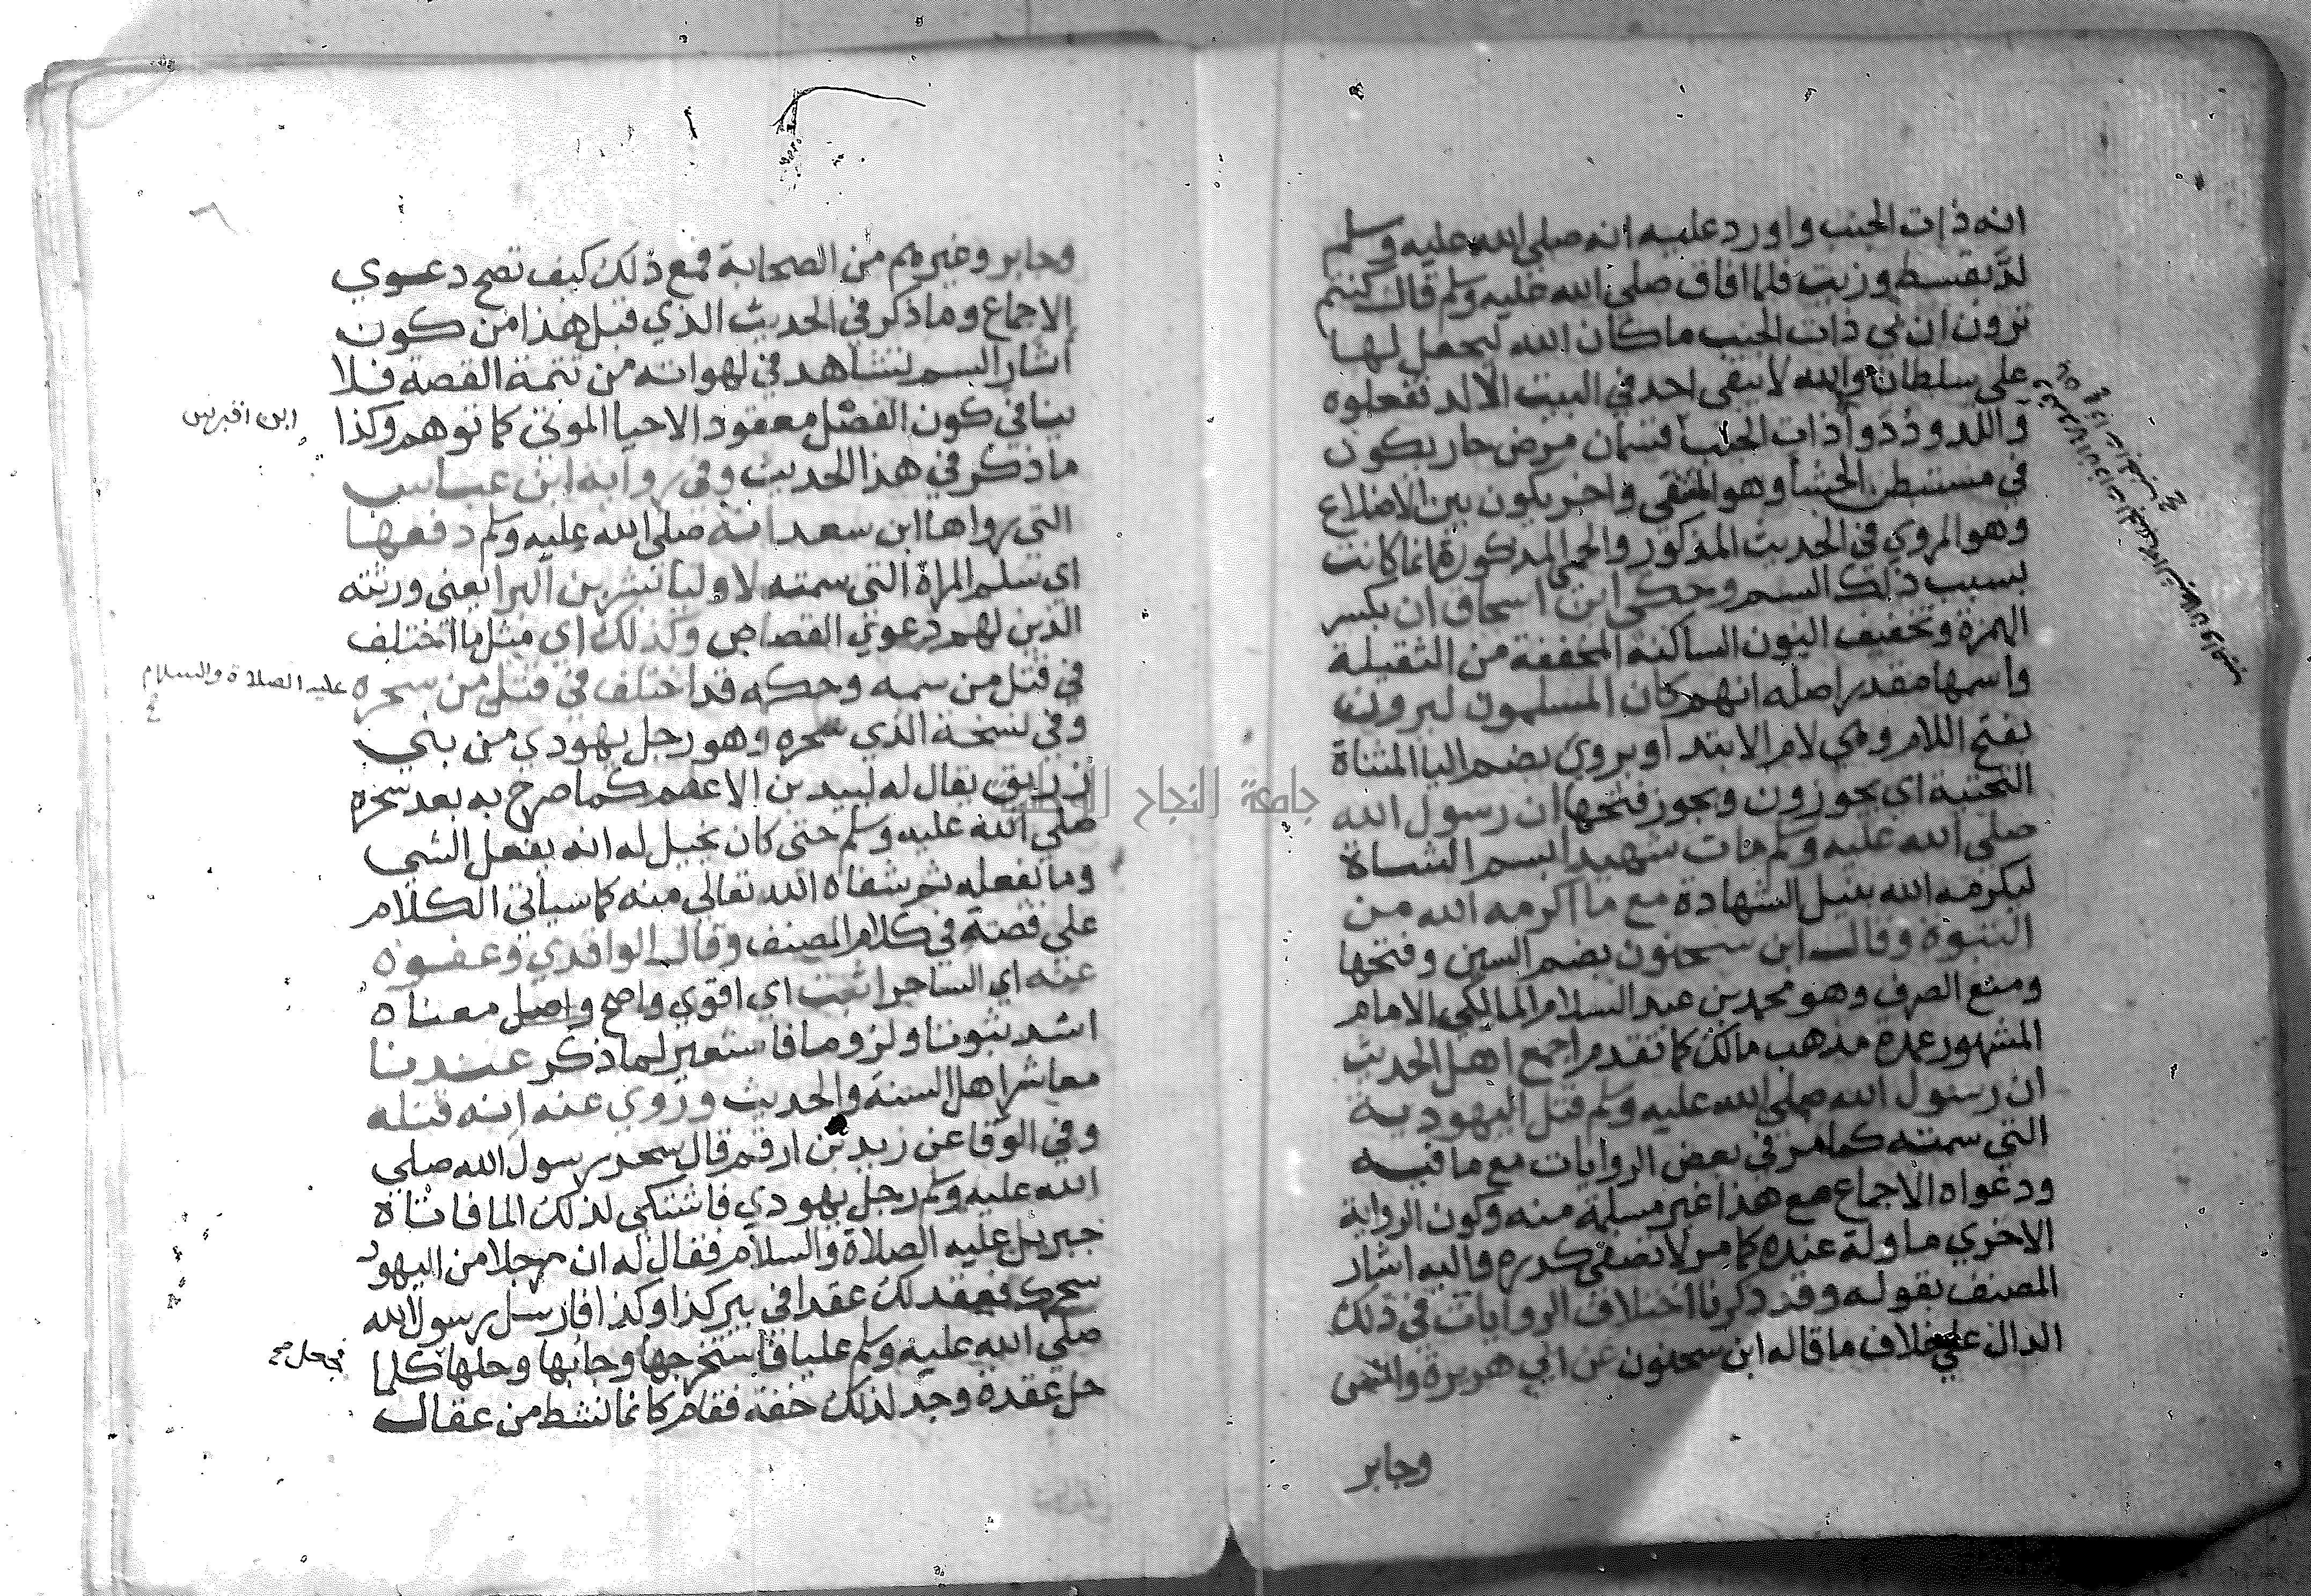 انه ذات الجنب واورد عليه انه صلى الله عليه وسلم
لد بقسط وزيت فلما افاق صلى الله عليه وسلم قال كنتم
ترون ان بي ذات الجنب ما كان الله ليجعل لها
على سلطان والله لا يبقى احد في البيت الا لد ففعلوه
واللدود دواذات الجنب قسمان مرض حار يكون
في مستبطن الحشا وهو المنفى واخر يكون بين الاضلاع
وهو المروي في الحديث المذكور والحمى المذكورة انما كانت
بسبب ذلك السم وحكى ابن اسحاق ان بكسر
الهمزة وتخفيف النون الساكنة المخففة من الثقيلة
واسمها مقدر اصله انهم كان المسلمون ليرون
بفتح اللام وهي لام الابتدا ويروى بضم اليا المثناة
التحتية اي يجوزون ويجوز فتحها ان رسول الله
صلى الله عليه وسلم مات شهيدا بسم الشاة
ليكرمه الله بنيل الشهادة مع ما اكرمه الله من
النبوة وقال ابن سحنون بضم السين وفتحها
ومنع الصرف وهو محمد بن عبد السلام المالكي الامام
المشهور عمدة مذهب مالك كما تقدم اجمع اهل الحديث
ان رسول الله صلى الله عليه وسلم قتل اليهودية
التي سمته كما مر في بعض الروايات مع ما فيه
ودعواه الاجماع مع هذا غير مسلمة منه وكون الرواية
الاخري ماولة عنده كما مر لا تصفى كدره واليه اشار
المصنف بقوله وقد ذكرنا اختلاف الروايات في ذلك
الدال على خلاف ما قاله ابن سحنون عن ابي هريرة وانس
وجابر
وجابر وغيرهم من الصحابة فمع ذلك كيف تصح دعوي
الاجماع وما ذكر في الحديث الذي قبل هذا من كون
اثار السم تشاهد في لهواته من تتمة القصة فلا
ينافي كون الفصل معقود الاحيا الموتى كما توهم وكذا
ابن اقبرس
ما ذكر في هذا الحديث وفي رواية ابن عباس
التي رواها ابن سعد انه صلى الله عليه وسلم دفعها
اي سلم المراة التي سمته لاوليا بشر بن البرا يعني ورثته
الذين لهم دعوي القصاص وكذلك اي مثل ما اختلف
في قتل من سمه وحكمه قد اختلف في قتل من سحره
عليه الصلاة والسلام
وفي نسخة الذي سحره وهو رجل يهودي من بني
زريق يقال له لبيد بن الاعصم كما صرح به بعد سحره
صلى الله عليه وسلم حتى كان يخيل له انه يفعل الشي
وما يفعله ثم شفاه الله تعالى منه كما سياتي الكلام
على قصته في كلام المصنف وقال الواقدي وعفوه
عنه اي الساحر اثبت اي اقوي واصح واصل معناه
اشد ثبوتا ولزوما فاستعير لما ذكر عندنا
معاشر اهل السنة والحديث وروي عنه انه قتله
وفي الوفا عن زيد بن ارقم قال سحر رسول الله صلى
الله عليه وسلم رجل يهودي فاشتكى لذلك الما فاتاة
جبريل عليه الصلاة والسلام فقال له ان رجلا من اليهود
سحرك فعقد لك عقدا في بير كذا وكذا فارسل رسول الله
صلى الله عليه وسلم عليا فاستخرجها وجابها وحلها كلما
فجعل صح
حل عقدة وجد لذلك خفة فقام كانما نشط من عقال